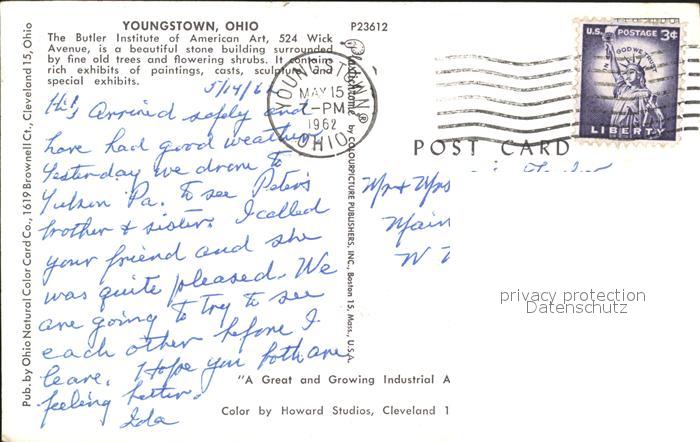 YOUNGSTOWN, OHIO
P23612
The Butler Institute of American Art, 524 Wick
Avenue, is a beautiful stone building surrounded
by fine old trees and flowering shrubs. It contains
rich exhibits of paintings, casts, sculpture and
special exhibits.
5/14/62
Hi, Arrived safely and
have had good weather
Yesterday we drove to
Pa. to see Peter's
brother & sister. I called
your friend and she
was quite pleased. We
are going to try to see
each other before I
leave. Hope you both are
feeling better.
Ida
Pub. by Ohio Natural Color Card Co., 1619 Brownell Ct., Cleveland 15, Ohio
Plastichrome ® by COLOURPICTURE PUBLISHERS, INC., Boston 15, Mass., U.S.A.
YOUNGSTOWN
MAY 15
-PM
1962
OHIO
U.S. POSTAGE 3¢
IN GOD WE TRUST
LIBERTY
POST CARD
Mr & Mrs
Main
W
privacy protection
Datenschutz
"A Great and Growing Industrial A
Color by Howard Studios, Cleveland 1